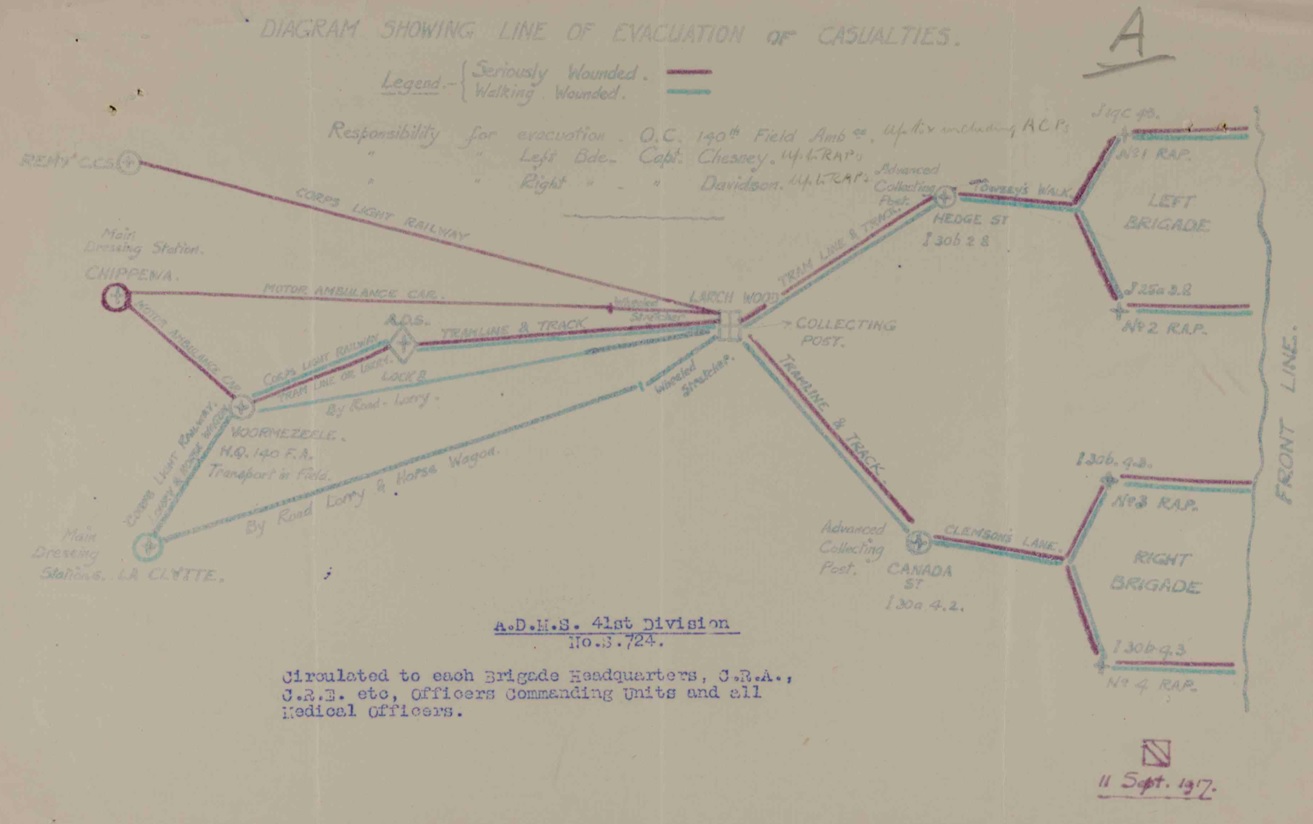 A
DIAGRAM SHOWING LINE OF EVACUATION OF CASUALTIES.
Legend.- { Seriously Wounded.
Walking Wounded.
Responsibility for evacuation. O.C. 140th Field Ambce. up to & including ACPs
" " Left Bde. Capt. Chesney. up to RAPs
" " Right " . " Davidson. up to RAPs
REMY C.C.S.
CORPS LIGHT RAILWAY
Main
Dressing Station.
CHIPPEWA.
MOTOR AMBULANCE CAR.
Wheeled
Stretcher
LARCH WOOD
COLLECTING
POST.
MOTOR AMBULANCE CAR
A.D.S.
TRAMLINE & TRACK
CORPS LIGHT RAILWAY
TRAM LINE OR LORRY.
LOCK 8
By Road-Lorry.
Wheeled
Stretcher.
VOORMEZEELE.
H.Q. 140 F.A.
Transport in Field.
CORPS LIGHT RAILWAY.
LORRY & HORSE WAGON
By Road Lorry & Horse Wagon.
Main
Dressing
Stations. LA CLYTTE.
TRAM LINE & TRACK.
Advanced
Collecting
Post.
HEDGE ST
I 30b 2 8
TOWSEY'S WALK.
No 1 RAP.
LEFT
BRIGADE
I 25a 3.8
No 2 RAP.
FRONT LINE.
TRAMLINE & TRACK.
Advanced
Collecting
Post.
CANADA
ST
I 30a 4.2.
CLEMSON'S LANE.
I 30b. 4.2.
No 3 RAP.
RIGHT
BRIGADE
I 30b 9.3
No 4 RAP.
A.D.M.S. 41st Division
No.S.724.
Circulated to each Brigade Headquarters, C.R.A.,
C.R.E. etc, Officers Commanding Units and all
Medical Officers.
11 Sept. 1917.